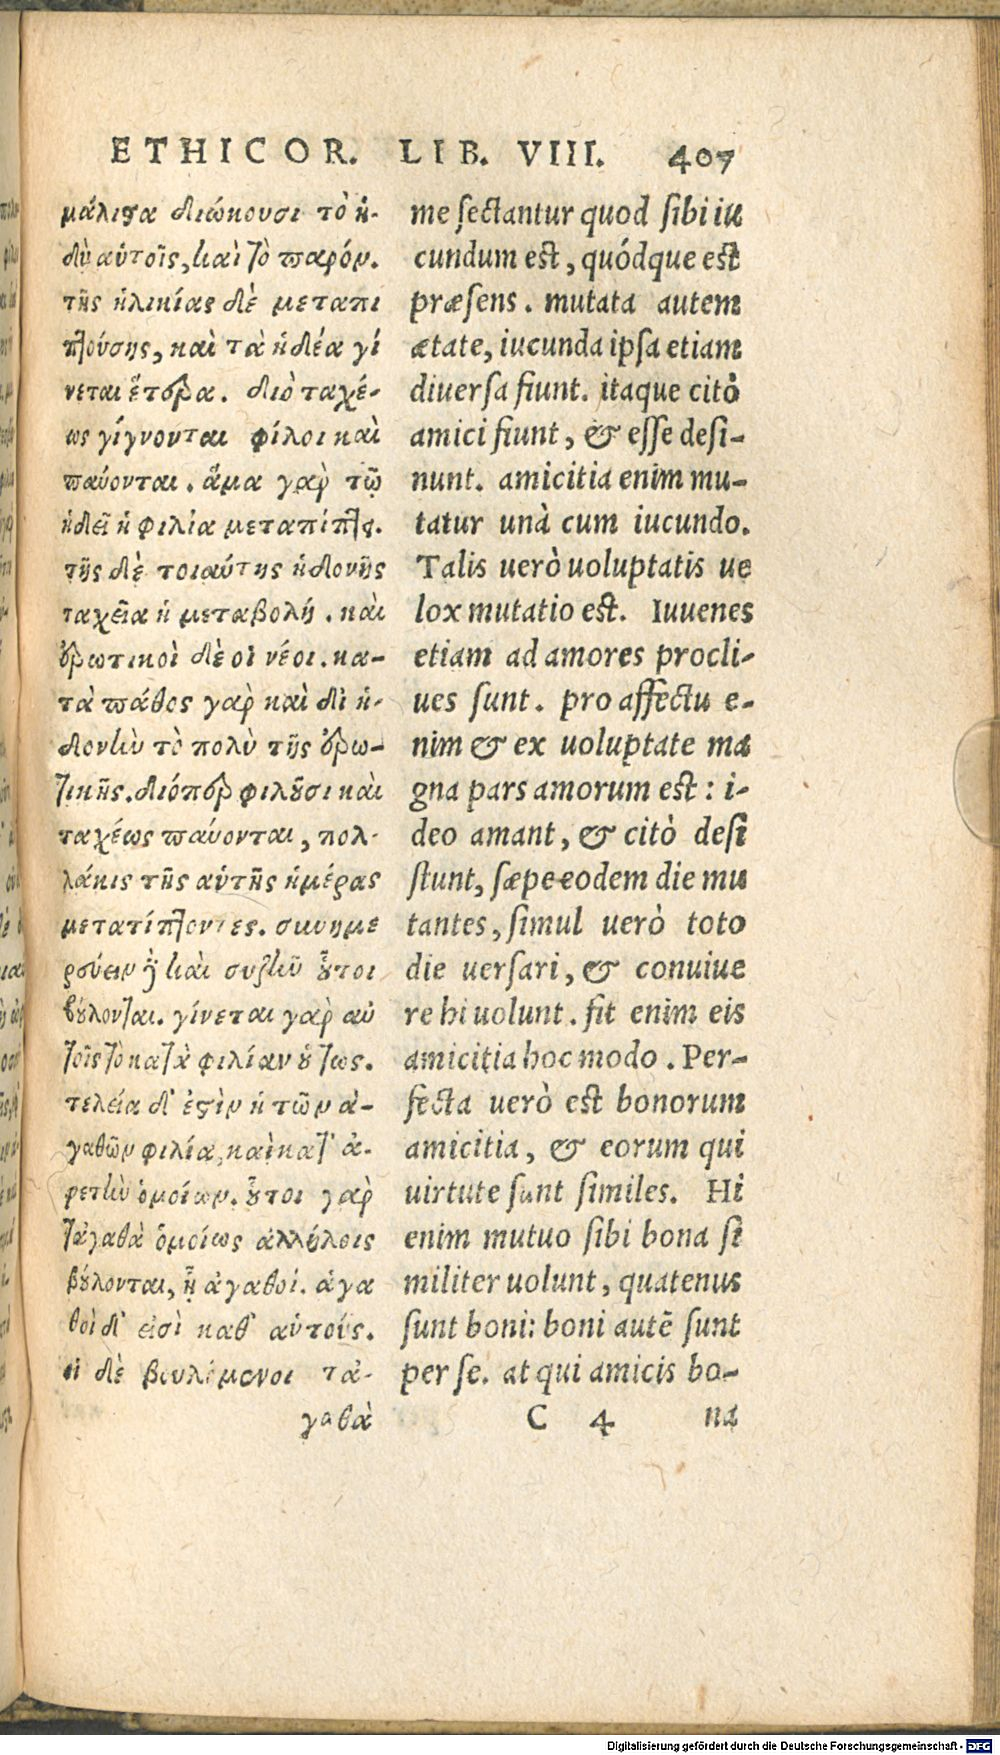 ETHICOR. LIB. VIII. 407
μάλιϛα διώκουσι τὸ ἡ-
δὺ αὑτοῖς, καὶ τὸ παρόν.
τῆς ἡλικίας δὲ μεταπι
πτούσης, καὶ τὰ ἡδέα γί
νεται ἕτερα. διὸ ταχέ-
ως γίγνονται φίλοι καὶ
παύονται. ἅμα γὰρ τῷ
ἡδεῖ ἡ φιλία μεταπίπτει.
τῆς δὲ τοιαύτης ἡδονῆς
ταχεῖα ἡ μεταβολή. καὶ
ἐρωτικοὶ δὲ οἱ νέοι. κα-
τὰ πάθος γὰρ καὶ δι ἡ-
δονὴν τὸ πολὺ τῆς ἐρω-
τικῆς. διόπερ φιλοῦσι καὶ
ταχέως παύονται, πολ-
λάκις τῆς αὐτῆς ἡμέρας
μετατίπτοντες. συνημε
ρεύειν δὲ καὶ συζῆν οὗτοι
βούλονται. γίνεται γὰρ αὐ
τοῖς τὸ κατὰ φιλίαν οὕτως.
τελεία δ' ἐϛὶν ἡ τῶν ἀ-
γαθῶν φιλία, καὶ κατ' ἀ-
ρετὴν ὁμοίων. οὗτοι γὰρ
τἀγαθὰ ὁμοίως ἀλλήλοις
βούλονται, ᾗ ἀγαθοί. ἀγα
θοὶ δ' εἰσὶ καθ' αὑτούς.
οἱ δὲ βουλόμενοι τἀ-
γαθὰ
me sectantur quod sibi iu
cundum est, quódque est
præsens. mutata autem
ætate, iucunda ipsa etiam
diuersa fiunt. itaque citò
amici fiunt, & esse desi-
nunt. amicitia enim mu-
tatur unà cum iucundo.
Talis uerò uoluptatis ue
lox mutatio est. Iuuenes
etiam ad amores procli-
ues sunt. pro affectu e-
nim & ex uoluptate ma
gna pars amorum est: i-
deo amant, & citò desi
stunt, sæpe eodem die mu
tantes, simul uerò toto
die uersari, & conuiue
re hi uolunt. fit enim eis
amicitia hoc modo. Per-
fecta uerò est bonorum
amicitia, & eorum qui
uirtute sunt similes. Hi
enim mutuo sibi bona si
militer uolunt, quatenus
sunt boni: boni autē sunt
per se. at qui amicis bo-
C 4 na
Digitalisierung gefördert durch die Deutsche Forschungsgemeinschaft - DFG